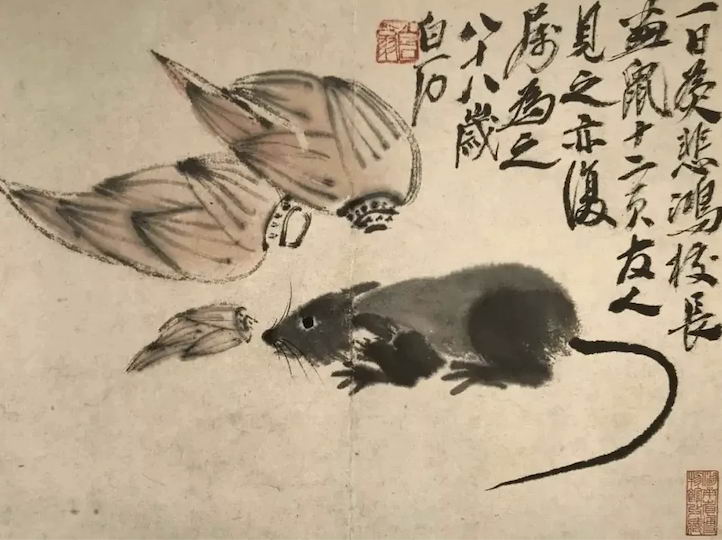 一日悲鴻校長
畫鼠十二頁友人
見之亦復
属為之
八十八歲
白石
白石翁